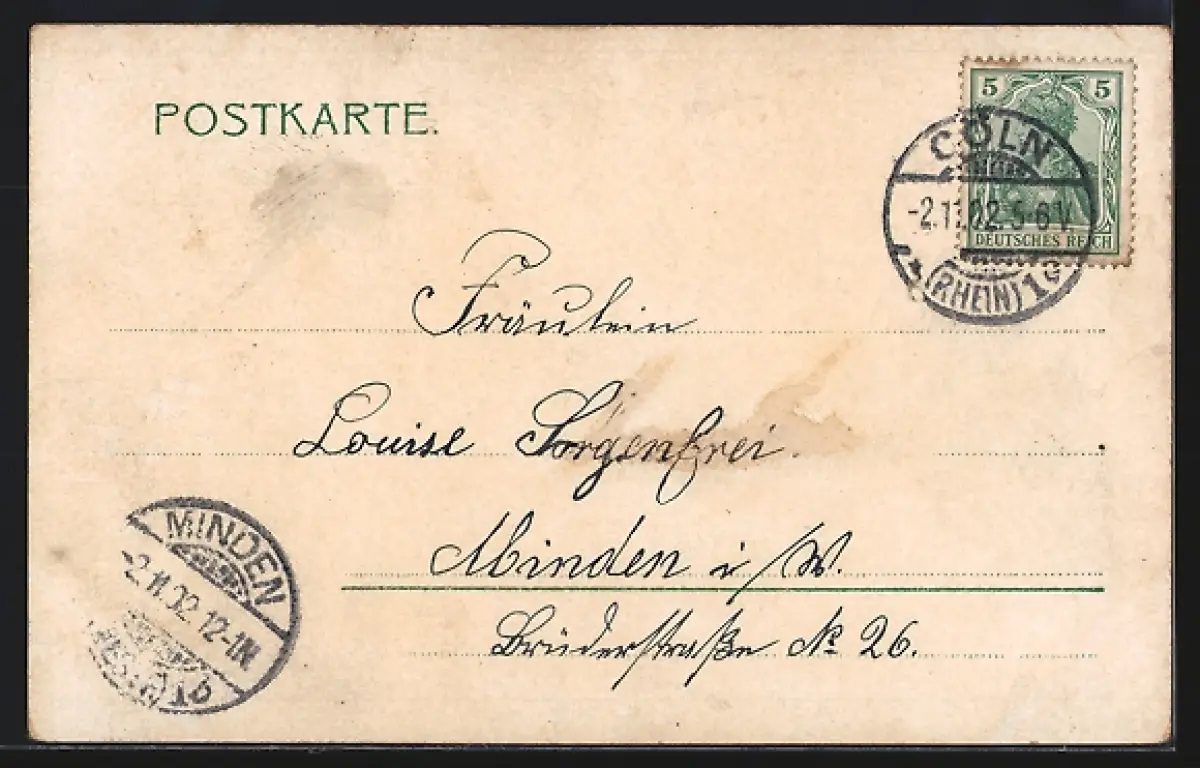 POSTKARTE.
5 5
DEUTSCHES REICH
CÖLN
-2.11.02. 5-6 V.
(RHEIN) 1g
Fräulein
Louise Sorgenfrei.
Minden i/W.
Brüderstraße No 26.
MINDEN
-2.11.02. 12-1N
1b